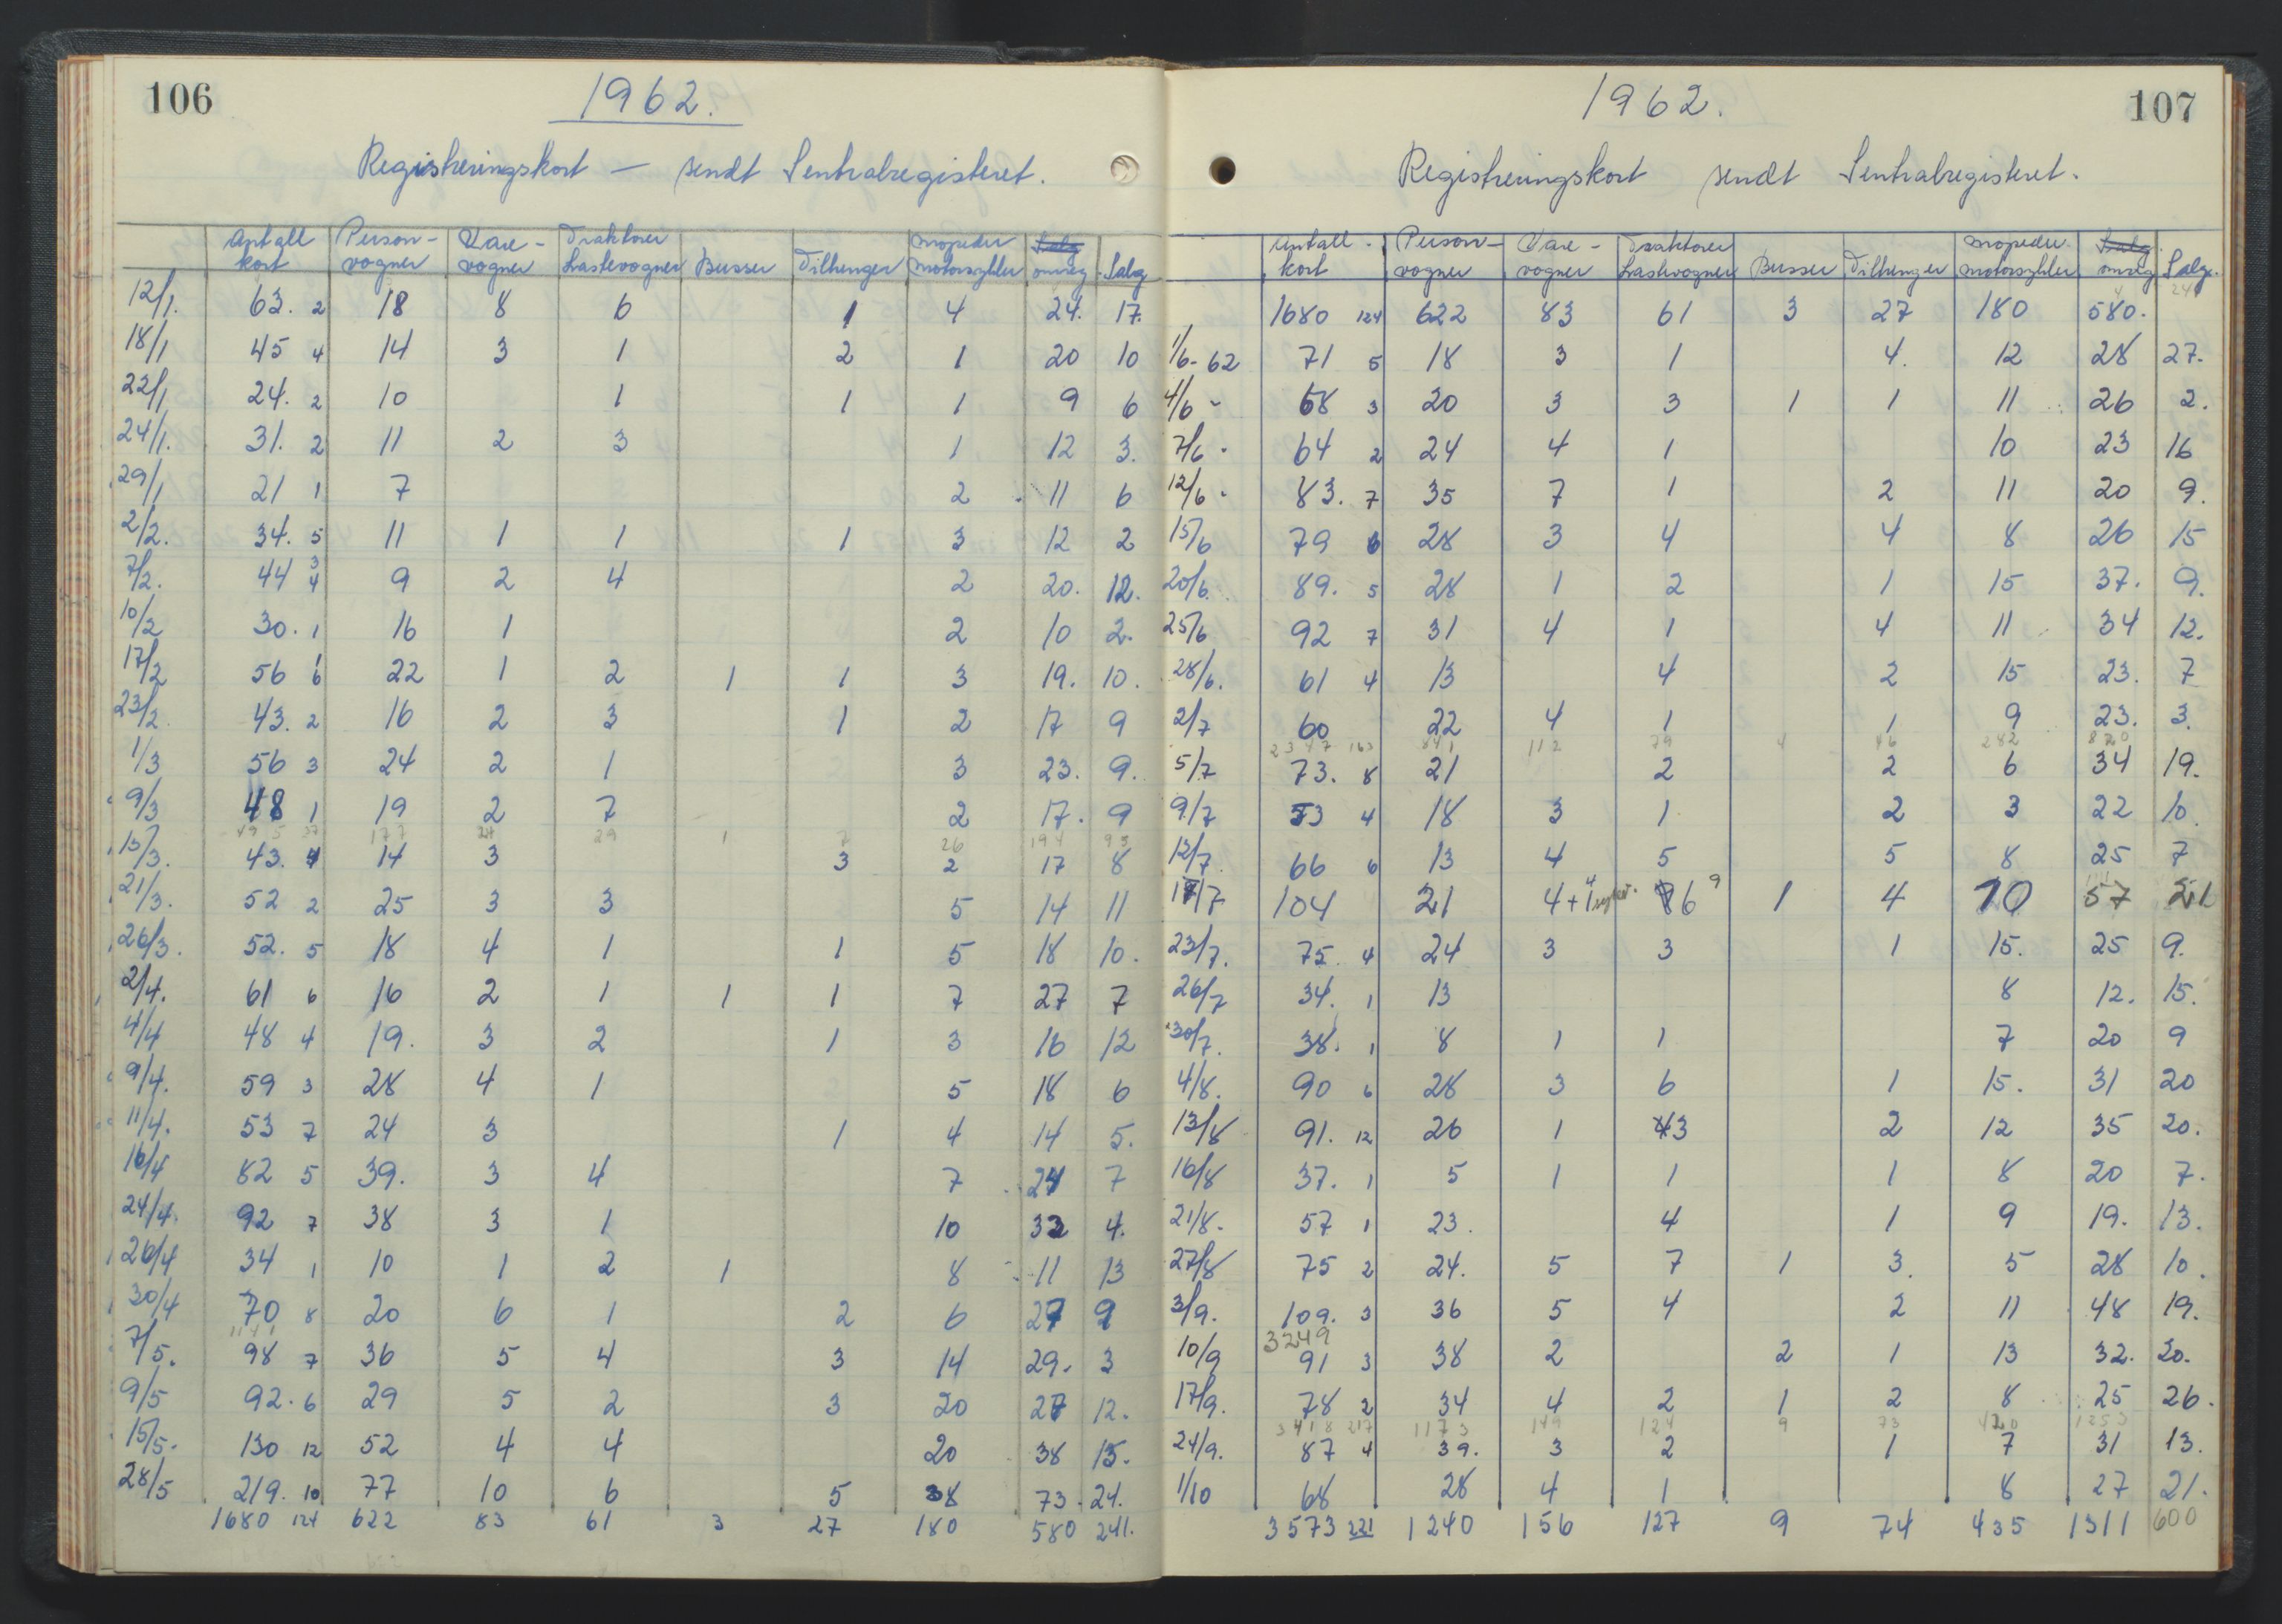 106
1962.
Registreringskort — sendt Sentralregisteret.
Antall kort Person-vogner Vare-vogner Traktorer Lastevogner Busser Tilhenger Mopeder motorsykler Salg omreg Salg
12/1. 63. 2 18 8 6 1 4 24. 17.
18/1 45 4 14 3 1 2 1 20 10
22/1 24. 2 10 1 1 1 9 6
24/1. 31. 2 11 2 3 1 12 3.
29/1 21 1 7 2 11 6
2/2. 34. 5 11 1 1 1 3 12 2
7/2. 44 3 4 9 2 4 2 20. 12.
10/2 30. 1 16 1 2 10 2.
17/2 56 1 6 22 1 2 1 1 3 19. 10.
23/2. 43. 2 16 2 3 1 2 17 9
1/3 56 3 24 2 1 3 23. 9.
9/3 48 1 19 2 7 2 17. 9
495 37 177 24 29 1 7 26 194 95
13/3. 43. 4 14 3 3 2 17 8
21/3. 52 2 25 3 3 5 14 11
26/3. 52. 5 18 4 1 1 5 18 10.
2/4. 61 6 16 2 1 1 1 7 27 7
4/4 48 4 19. 3 2 1 3 16 12
9/4. 59 3 28 4 1 5 18 6
11/4. 53 7 24 3 1 4 14 5.
16/4 82 5 39. 3 4 7 24 7
24/4. 92 7 38 3 1 10 32 4.
26/4 34 1 10 1 2 1 8 11 13
30/4 70 8 20 6 1 2 6 27 9
1141
7/5. 98 7 36 5 4 3 14 29. 3
9/5 92. 6 29 5 2 3 20 27 12.
15/5. 130 12 52 4 4 20 38 15.
28/5 219. 10 77 10 6 5 38 73. 24.
1680 124 622 83 61 3 27 180 580 241.
107
1962.
Registreringskort sendt Sentralregisteret.
Antall kort Person-vogner Vare-vogner Traktorer Lastevogner Busser Tilhenger Mopeder motorsykler Salg omreg Salg.
1680 124 622 83 61 3 27 180 580. 241
1/6-62 71 5 18 3 1 4. 12 28 27.
4/6 - 68 3 20 3 3 1 1 11 26 2.
7/6 - 64 2 24 4 1 10 23 16
12/6 - 83. 7 35 7 1 2 11 20 9.
15/6 79 6 28 3 4 4 8 26 15
20/6. 89. 5 28 1 2 1 15 37. 9.
25/6 92 7 31 4 1 4 11 34 12.
28/6. 61 4 13 4 2 15 23. 7
2/7 60 22 4 1 1 9 23. 3.
2347 163 841 112 79 4 46 282 820
5/7 73. 8 21 2 2 6 34 19.
9/7 53 4 18 3 1 2 3 22 10.
12/7. 66 6 13 4 5 5 8 25 7
17/7 104 21 4+1 6 9 1 4 10 57 21
23/7. 75. 4 24 3 3 1 15. 25 9.
26/7 34. 1 13 8 12. 15.
30/7. 38. 1 8 1 1 7 20 9
4/8. 90 6 28 3 6 1 15. 31 20
13/8 91. 12 26 1 43 2 12 35 20.
16/8 37. 1 5 1 1 1 8 20 7.
21/8. 57 1 23. 4 1 9 19. 13.
27/8 75 2 24. 5 7 1 3. 5 28 10.
3/9. 109. 3 36 5 4 2 11 48 19.
3249
10/9 91 3 38 2 2 1 13 32. 20.
17/9. 78 2 34 4 2 1 2 8 25 26.
3418 217 1173 149 124 9 73 420 1253
24/9. 87 4 39. 3 2 1 7 31 13.
1/10 68 28 4 1 8 27 21.
3573 221 1240 156 127 9 74 435 1311 600